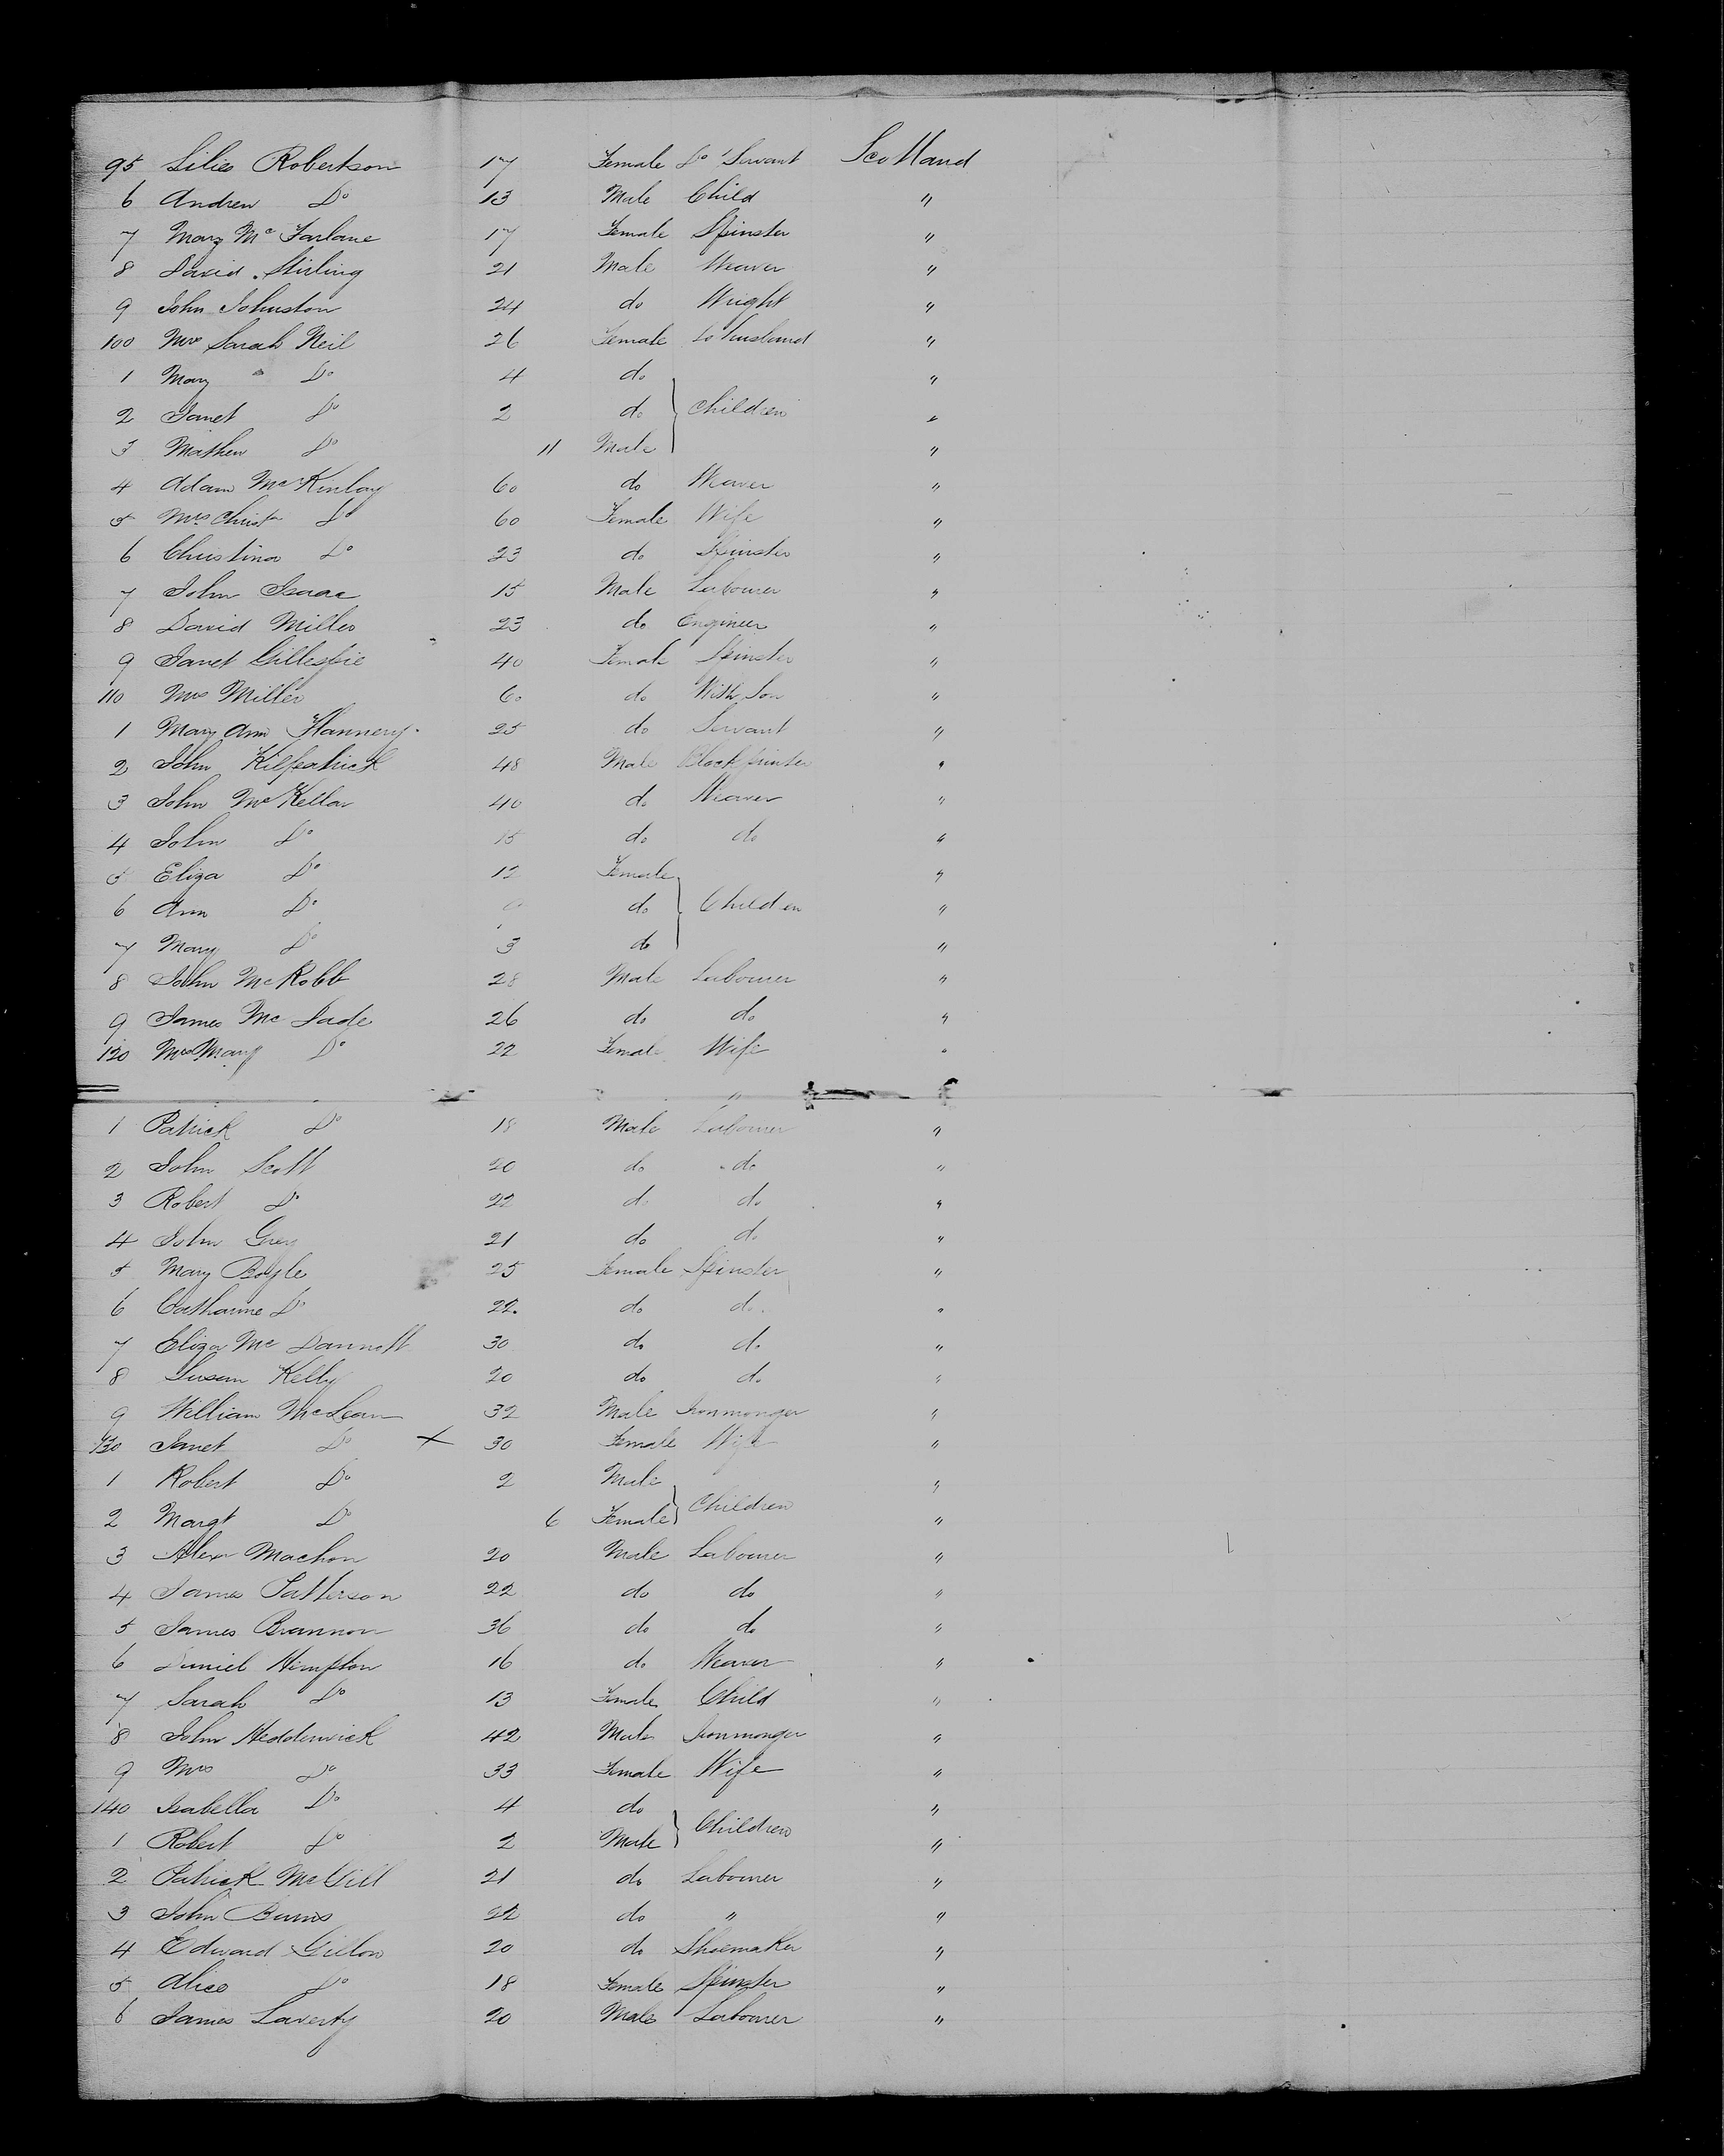 95 Lilies Robertson 17 Female Do Servant Scotland
6 Andrew Do 13 Male Child "
7 Mary Mc Farlane 17 Female Spinster "
8 David Stirling 21 Male Weaver "
9 John Johnston 24 do Wright "
100 Mrs Sarah Neil 26 Female To husband "
1 Mary Do 4 do "
2 Janet Do 2 do Children "
3 Mathew Do 11 Male "
4 Adam McKinlay 60 do Weaver "
5 Mrs Christn Do 60 Female Wife "
6 Christina Do 23 do Spinster "
7 John Isaac 15 Male Labourer "
8 David Miller 23 do Engineer "
9 Janet Gillespie 40 Female Spinster "
110 Mrs Miller 60 do With Son "
1 Mary Ann Flannery 25 do Servant "
2 John Kilpatrick 48 Male Block printer "
3 John McKellar 40 do Weaver "
4 John Do 15 do do "
5 Eliza Do 12 Female "
6 Ann Do do Children "
7 Mary Do 3 do "
8 John McRobb 28 Male Labourer "
9 James Mc Dade 26 do do "
120 Mrs Mary Do 22 Female Wife "
1 Patrick Do 18 Male Labourer "
2 John Scott 20 do do "
3 Robert Do 22 do do "
4 John Grey 21 do do "
5 Mary Boyle 25 Female Spinster "
6 Catharine Do 22 do do "
7 Eliza Mc 30 do do "
8 Susan Kelly 20 do do "
9 William McLean 32 Male Ironmonger "
130 Janet Do X 30 Female Wife "
1 Robert Do 2 Male "
2 Margt Do 6 Female Children "
3 Alexr Machon 20 Male Labourer "
4 James Patterson 22 do do "
5 James Brannon 36 do do "
6 Daniel 16 do Weaver "
7 Sarah Do 13 Female Child "
8 John Hedderwick 42 Male Ironmonger "
9 Mrs Do 33 Female Wife "
140 Isabella Do 4 do "
1 Robert Do 2 Male Children "
2 Patrick McGill 21 do Labourer "
3 John Burns 22 do " "
4 Edward Gillon 20 do Shoemaker "
5 Alice Do 18 Female Spinster "
6 James Laverty 20 Male Labourer "